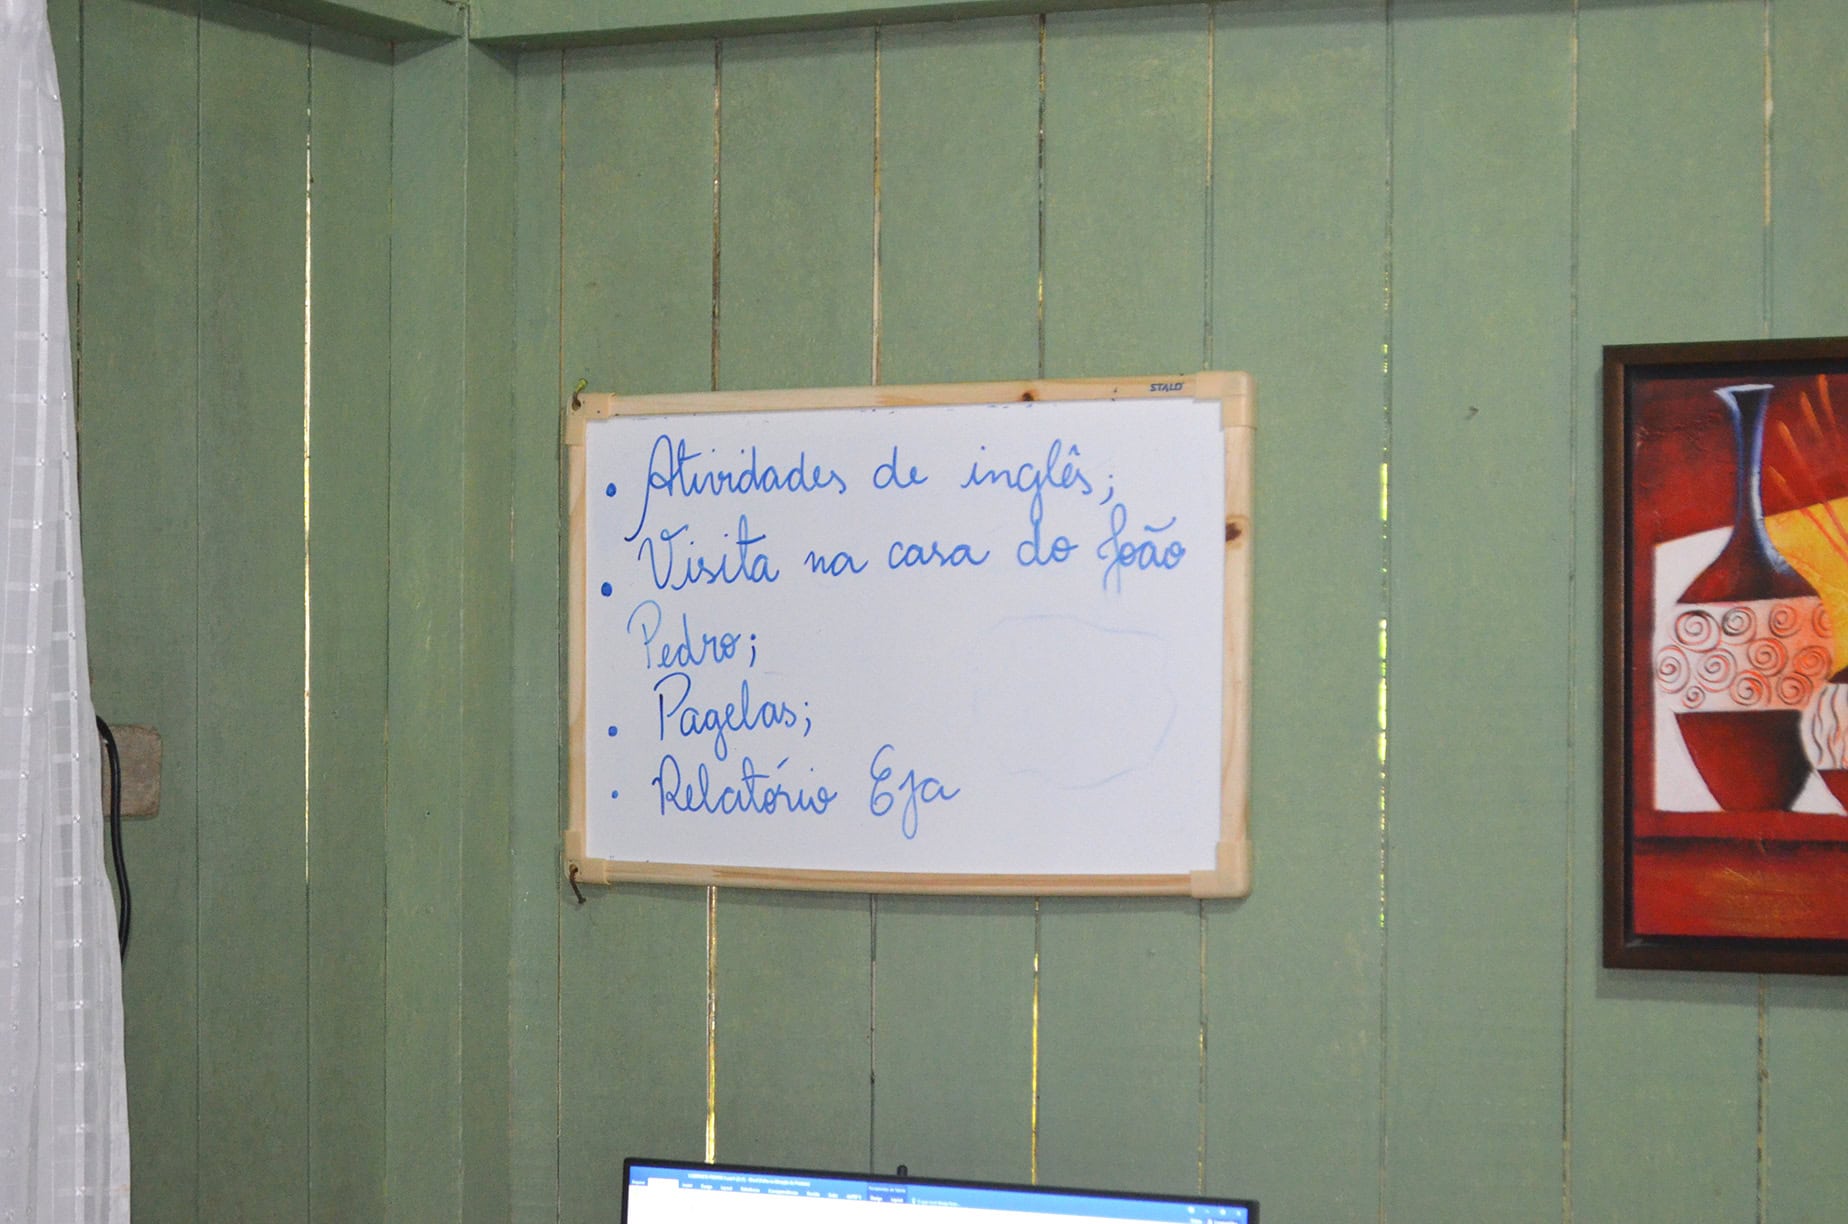 STALO
• Atividades de inglês;
• Visita na casa do João
Pedro;
• Pagelas;
• Relatório Eja